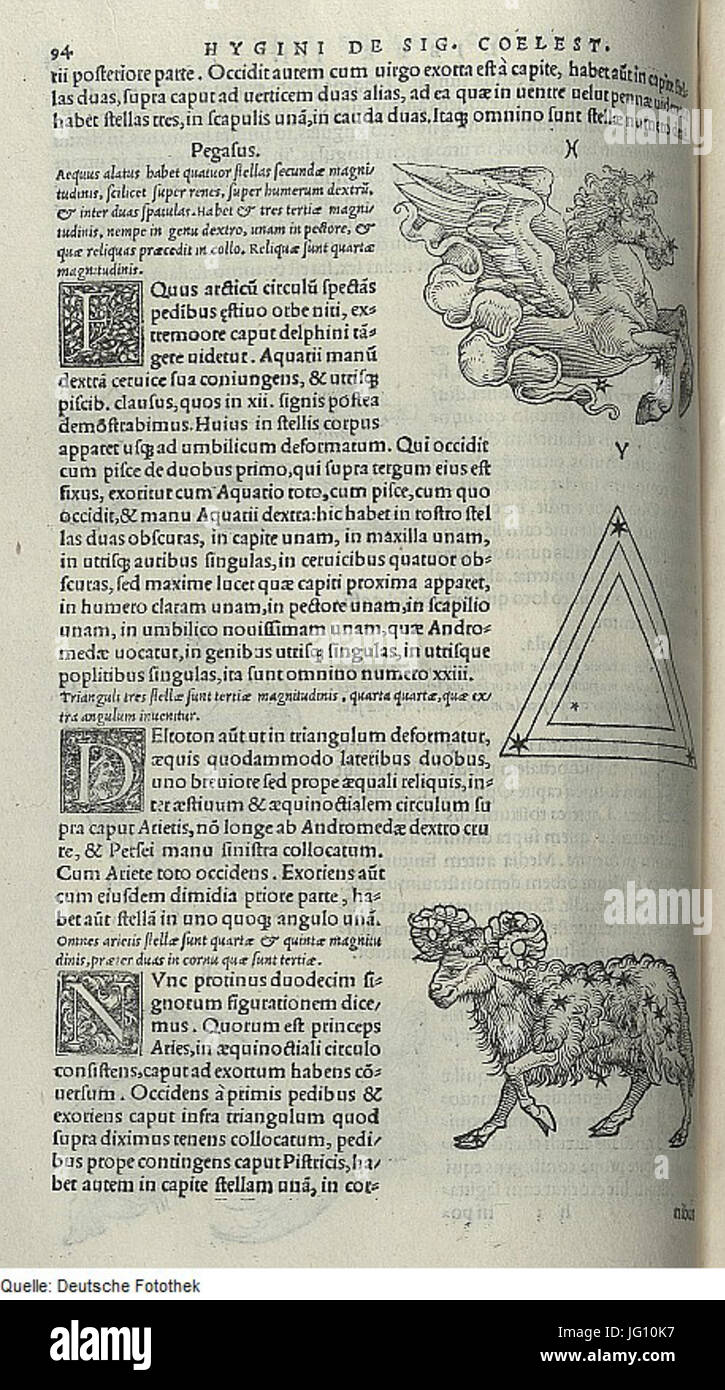 94 HYGINI DE SIG. COELEST.
rii posteriore parte. Occidit autem cum uirgo exorta est à capite, habet aūt in capite stel-
las duas, supra caput ad uerticem duas alias, ad ea quæ in uentre uelut pennæ
habet stellas tres, in scapulis unā, in cauda duas. Itaq; omnino sunt stellæ numero
Pegasus.
♓
Aequus alatus habet quatuor stellas secundæ magni/
tudinis, scilicet super renes, super humerum dextrū,
& inter duas spatulas. Habet & tres tertiæ magni/
tudinis, nempe in genu dextro, unam in pectore, &
quæ reliquas præcedit in collo. Reliquæ sunt quartæ
magnitudinis.
IQuus arcticū circulū spectās
pedibus ęstiuo orbe niti, ex-
tremo ore caput delphini tā-
gere uidetur. Aquarii manū
dextrā ceruice sua coniungens, & utrisq;
piscib. clausus, quos in xii. signis postea
demōstrabimus. Huius in stellis corpus
apparet usq; ad umbilicum deformatum. Qui occidit
cum pisce de duobus primo, qui supra tergum eius est
fixus, exoritur cum Aquario toto, cum pisce, cum quo
occidit, & manu Aquarii dextra: hic habet in rostro stel
las duas obscuras, in capite unam, in maxilla unam,
in utrisq; auribus singulas, in ceruicibus quatuor ob-
scuras, sed maxime lucet quæ capiti proxima apparet,
in humero claram unam, in pectore unam, in scapilio
unam, in umbilico nouissimam unam, quæ Andro-
medæ uocatur, in genibus utrisq; singulas, in utrisque
poplitibus singulas, ita sunt omnino numero xxiii.
♈
Trianguli tres stellæ sunt tertiæ magnitudinis, quarta quartæ, quæ ex/
tra angulum inuenitur.
DEltoton aūt ut in triangulum deformatur,
æquis quodammodo lateribus duobus,
uno breuiore sed prope æquali reliquis, in-
ter æstiuum & æquinoctialem circulum su
pra caput Arietis, nō longe ab Andromedæ dextro cru
re, & Persei manu sinistra collocatum.
Cum Ariete toto occidens. Exoriens aūt
cum eiusdem dimidia priore parte, ha-
bet aūt stellā in uno quoq; angulo unā.
Omnes arietis stellæ sunt quartæ & quintæ magnitu
dinis, præter duas in cornu quæ sunt tertiæ.
NVnc protinus duodecim si-
gnorum figurationem dice-
mus. Quorum est princeps
Aries, in æquinoctiali circulo
consistens, caput ad exortum habens cō-
uersum. Occidens à primis pedibus &
exoriens caput infra triangulum quod
supra diximus tenens collocatum, pedi/
bus prope contingens caput Pistricis, ha/
bet autem in capite stellam unā, in cor-
Quelle: Deutsche Fotothek
alamy stock photo
JG10K7
www.alamy.com